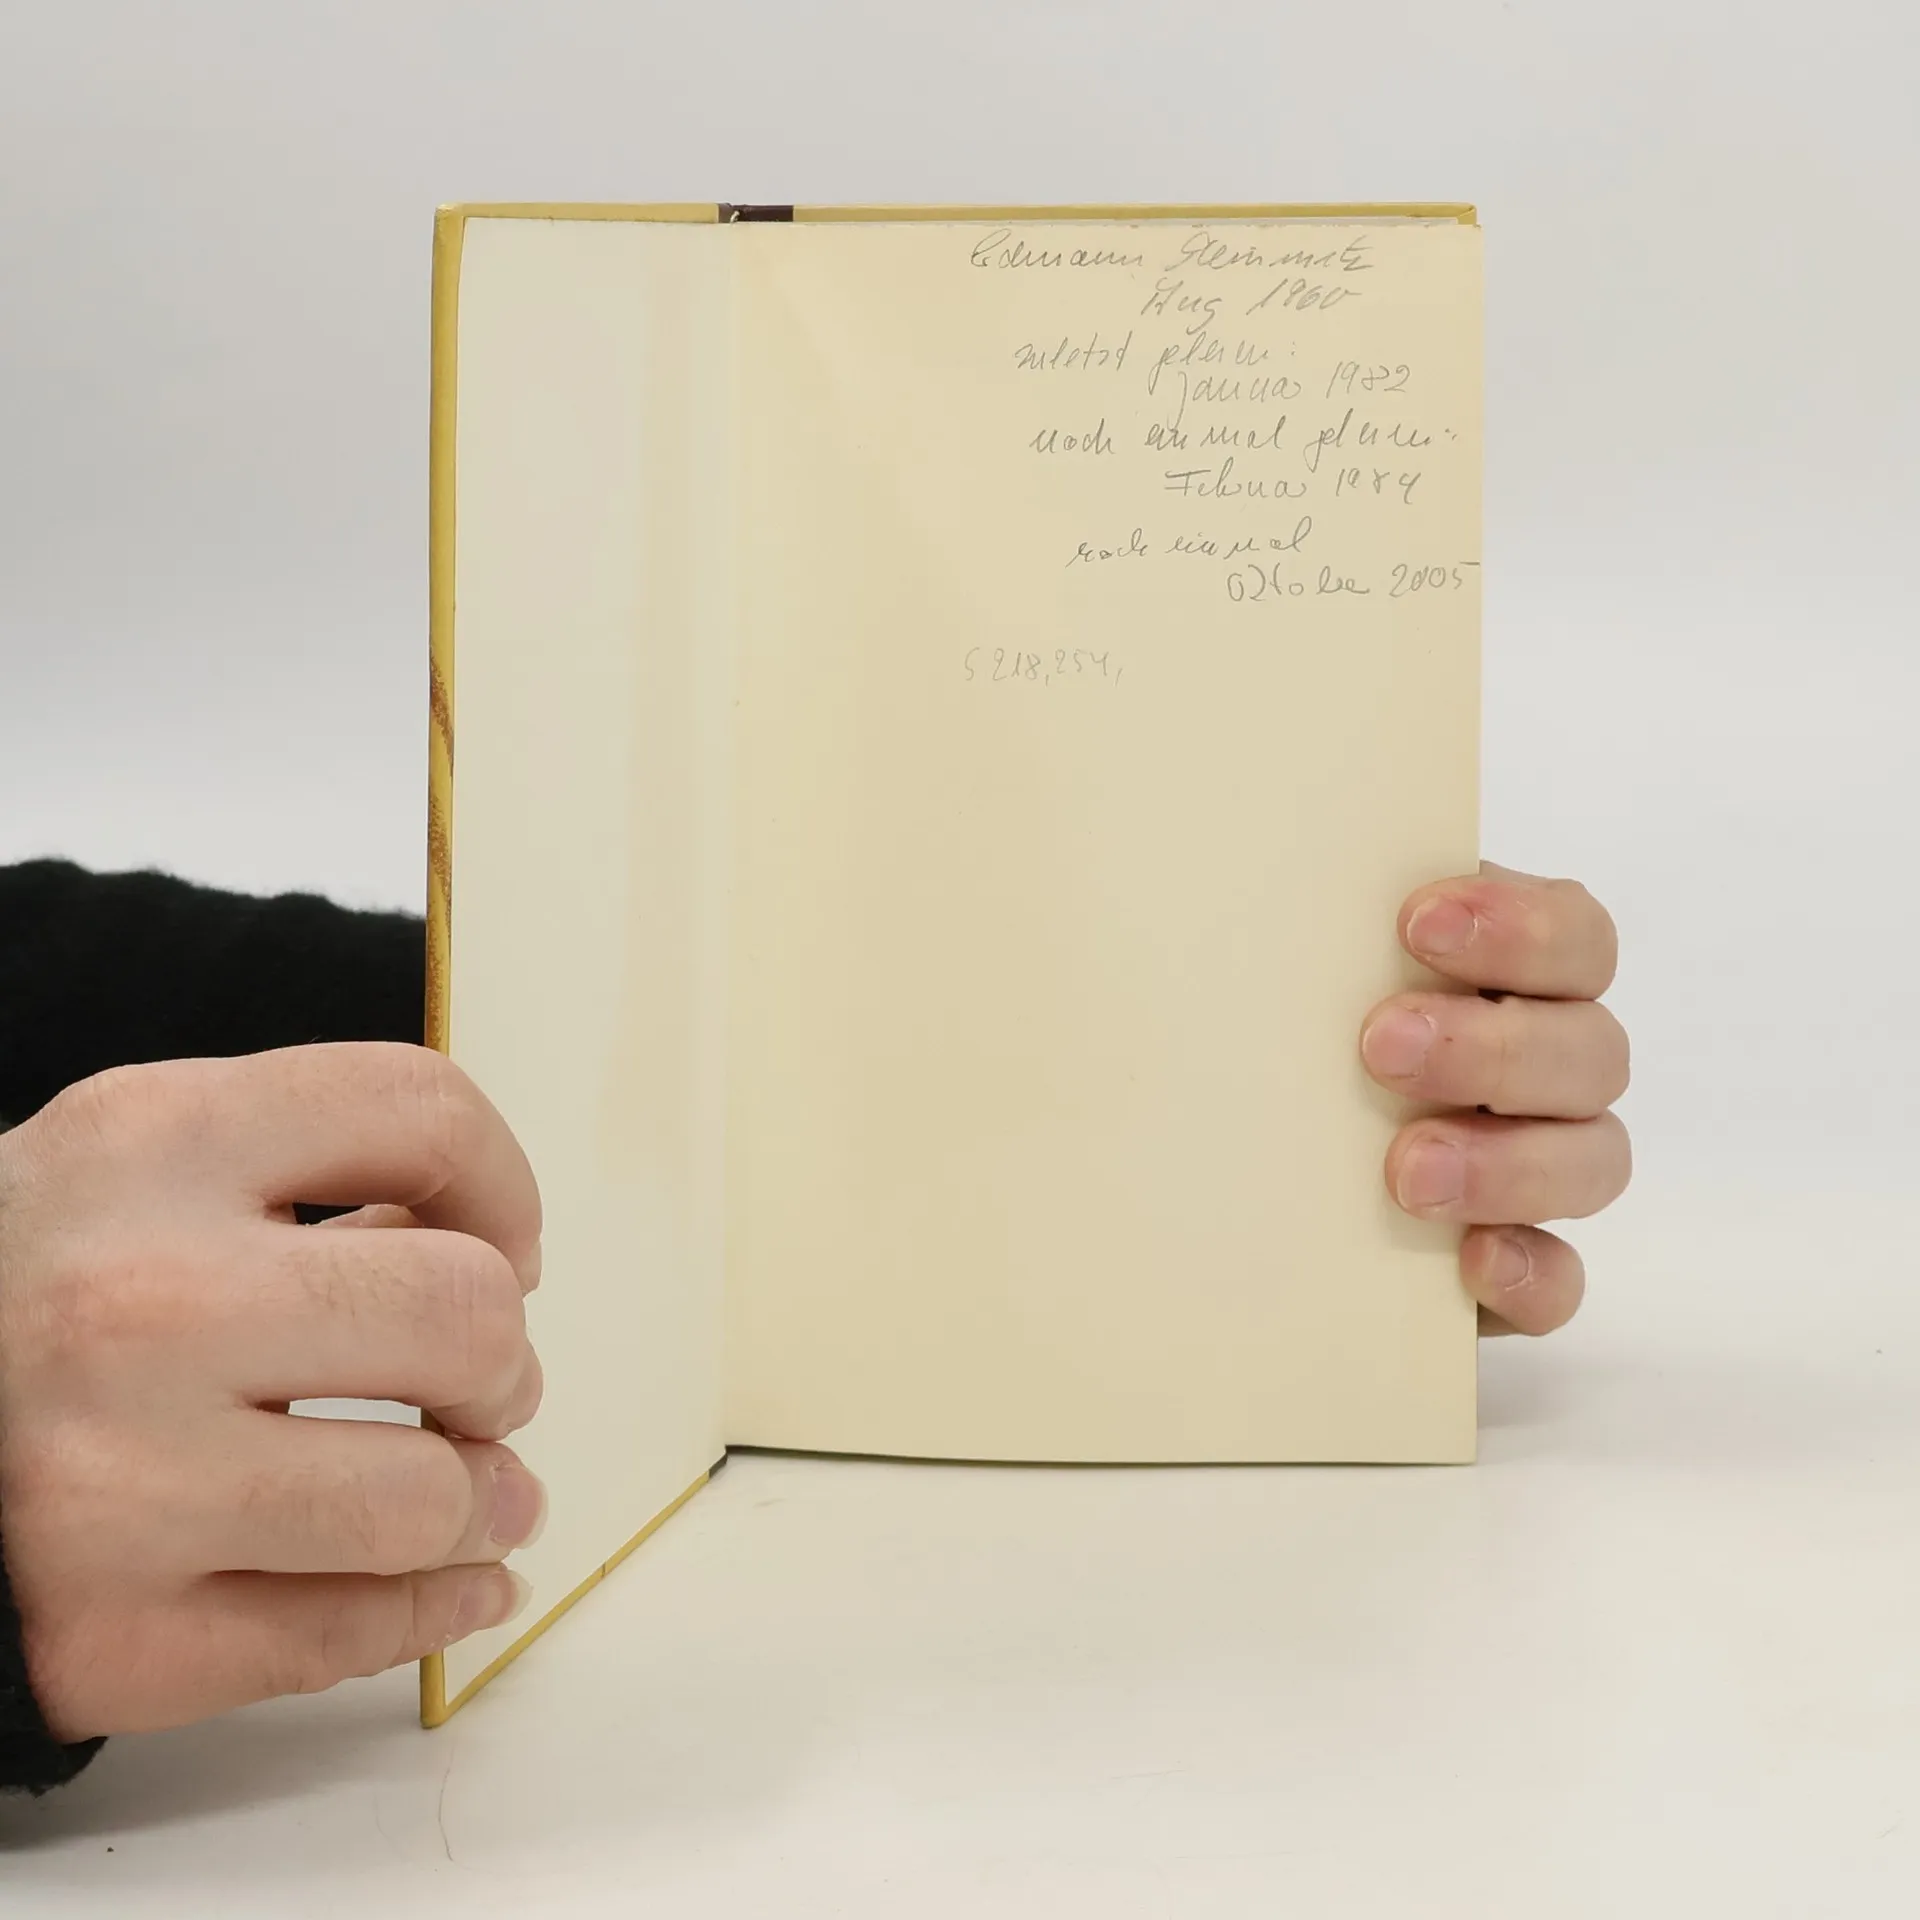 Edmann Steinmetz
Aug 1960
zuletzt gelesen:
Januar 1982
noch einmal gelesen:
Februar 1984
noch einmal
Oktober 2005
S 218, 254,